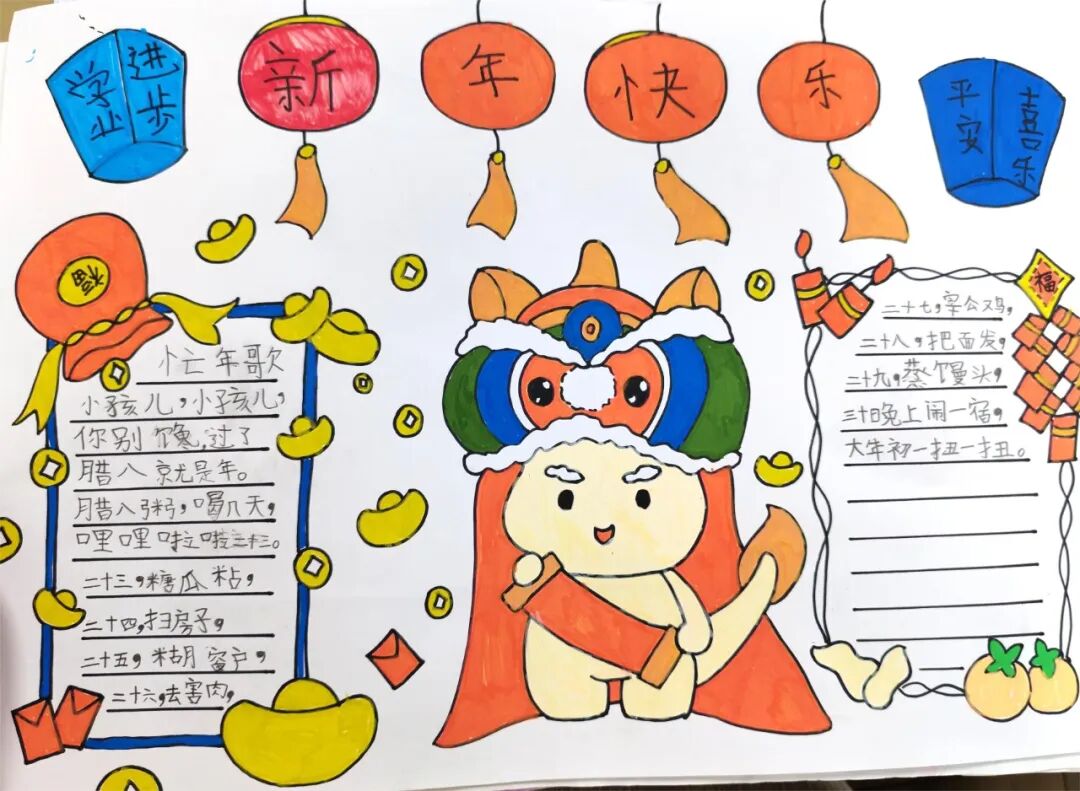 学业进步
新年快乐
平安喜乐
福
忙年歌
小孩儿，小孩儿，
你别馋，过了
腊八就是年。
腊八粥，喝几天，
哩哩啦啦二十三。
二十三，糖瓜粘，
二十四，扫房子，
二十五，糊窗户，
二十六，去害肉，
福
二十七，宰公鸡，
二十八，把面发，
二十九，蒸馒头，
三十日晚上闹一宿，
大年初一扭一扭。